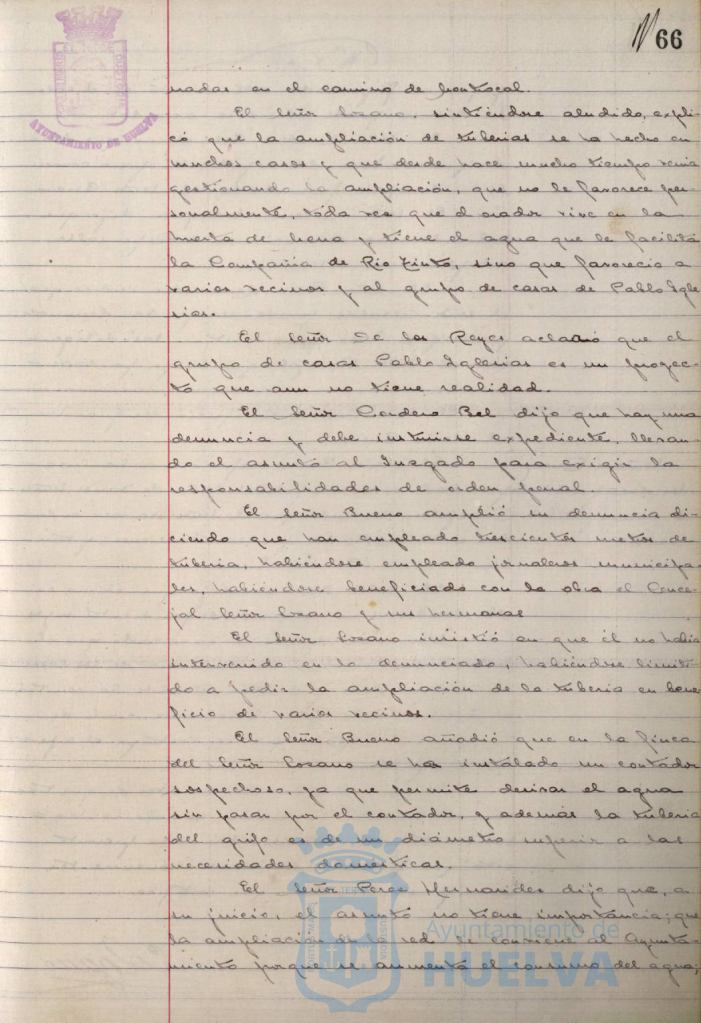 66
AYUNTAMIENTO DE HUELVA
nadas en el camino de
El señor Lozano, sintiéndose aludido, expli-
có que la ampliación de tuberías se ha hecho en
muchos casos y que desde hace mucho tiempo venía
gestionando la ampliación, que no le favorece per-
sonalmente, toda vez que el orador vive en la
huerta de Mena y tiene el agua que le facilita
la Compañía de Rio Tinto, sino que favorecía a
varios vecinos y al grupo de casas de Pablo Igle
sias.
El señor De los Reyes aclaró que el
grupo de casas Pablo Iglesias es un proyec-
to que aun no tiene realidad.
El señor Cordero Bel dijo que hay una
denuncia y debe instruirse expediente, llevan-
do el asunto al Juzgado para exigir la
responsabilidades de orden penal.
El señor Bueno amplió su denuncia di-
ciendo que han empleado trescientos metros de
tubería, habiéndose empleado jornaleros municipa-
les, habiéndose beneficiado con la obra el Conce-
jal señor Lozano y sus hermanas
El señor Lozano insistió en que él no había
intervenido en lo denunciado, habiéndose limita-
do a pedir la ampliación de la tubería en bene
ficio de varios vecinos.
El señor Bueno añadió que en la finca
del señor Lozano se ha instalado un contador
sospechoso, ya que permite derivar el agua
sin pasar por el contador, y además la tubería
del grifo es de un diámetro superior a las
necesidades domésticas.
El señor Perez Hernandez dijo que, a
su juicio, el asunto no tiene importancia; que
la ampliación de la red le conviene al Ayunta-
miento porque se aumenta el consumo del agua;
Ayuntamiento de
HUELVA